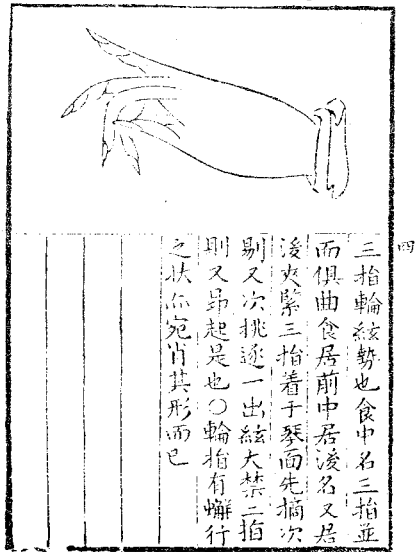 四
三指輪絃勢也食中名三指並
而俱曲食居前中居後名又居
後夾緊三指着于琴面先摘次
剔又次挑逐一出絃大禁二指
則又昻起是也○輪指有蠏行
之狀仄宛肖其形而已